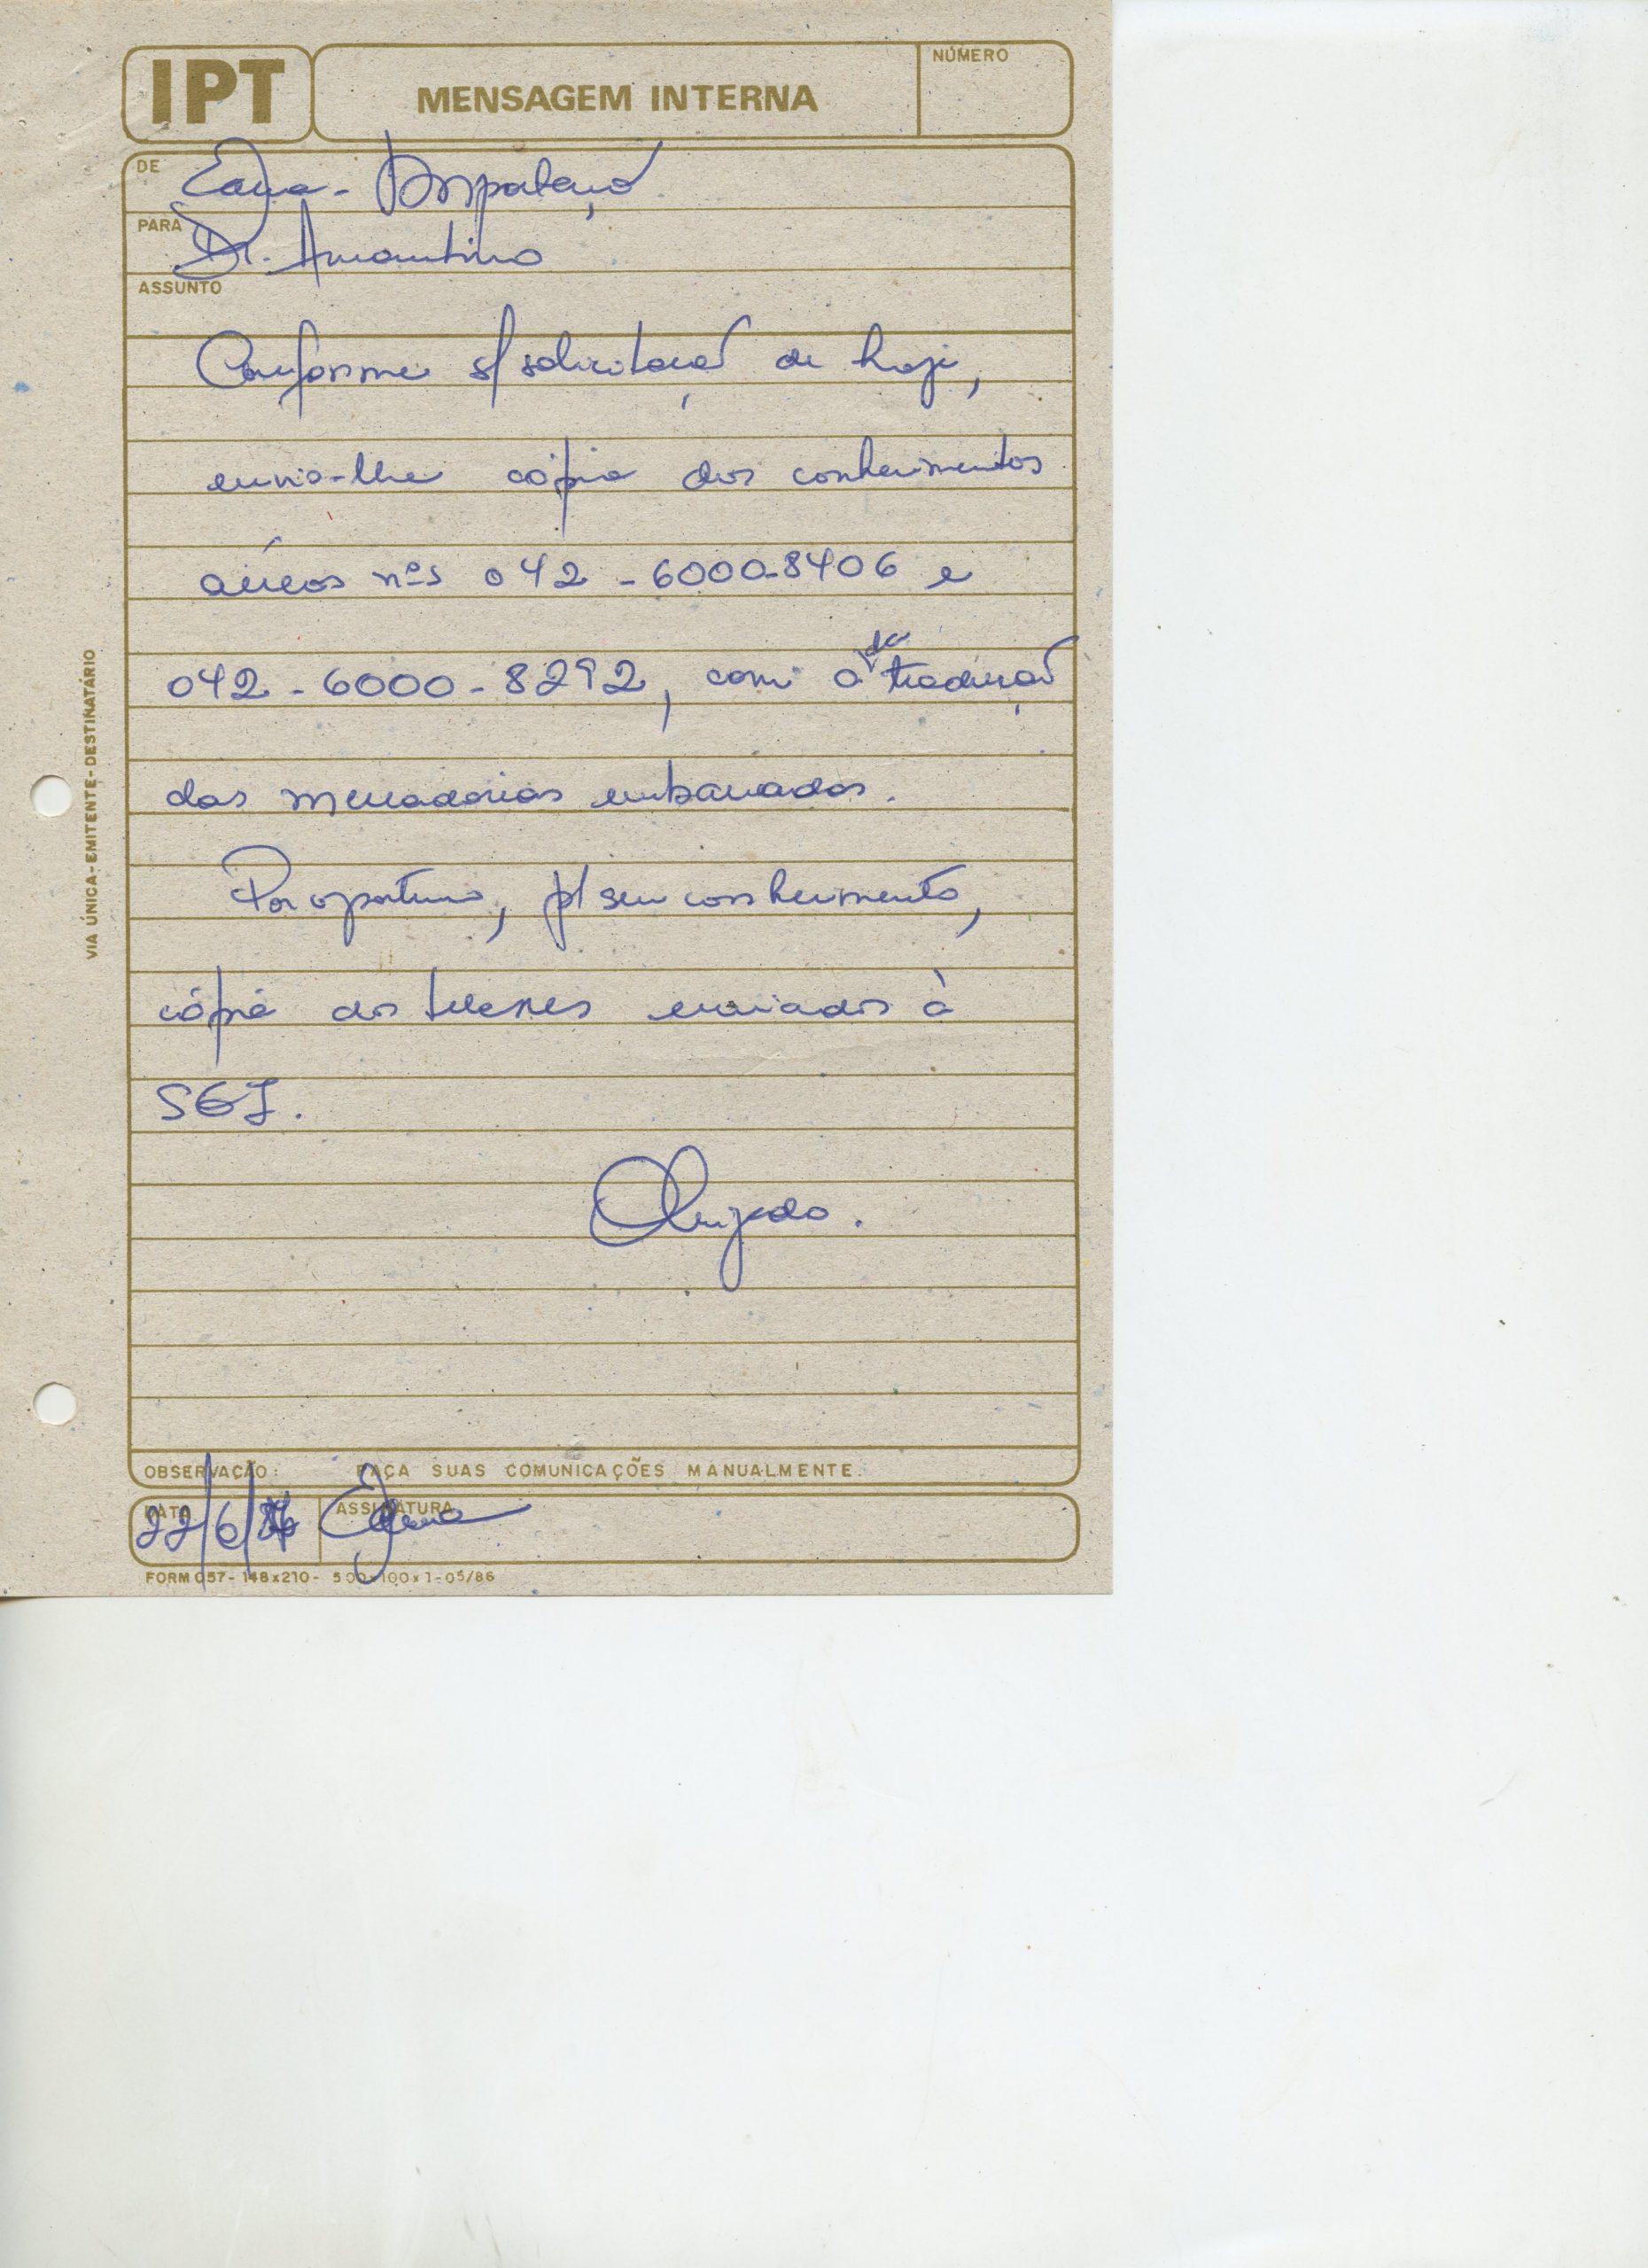 IPT
MENSAGEM INTERNA
NÚMERO
DE Edna - Importação
PARA Dr. Amantino
ASSUNTO
Conforme s/ solicitação de hoje,
envio-lhe cópia dos conhecimentos
aéreos nºs 042 - 6000-8406 e
042 - 6000 - 8292, com a tradução
das mercadorias embarcadas.
Por oportuno, p/ seu conhecimento,
cópia dos telexes enviados à
SEI.
Obrigado.
OBSERVAÇÃO: FAÇA SUAS COMUNICAÇÕES MANUALMENTE.
DATA 22/6/ ASSINATURA Edna
FORM 057 - 148x210 - 500x100x1-05/86
VIA ÚNICA-EMITENTE-DESTINATÁRIO